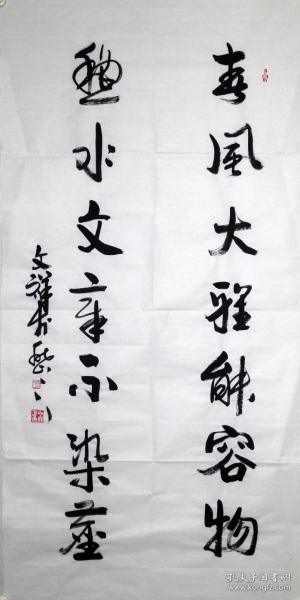 春風大雅能容物
秋水文章不染塵
文祥書
孔夫子旧书网